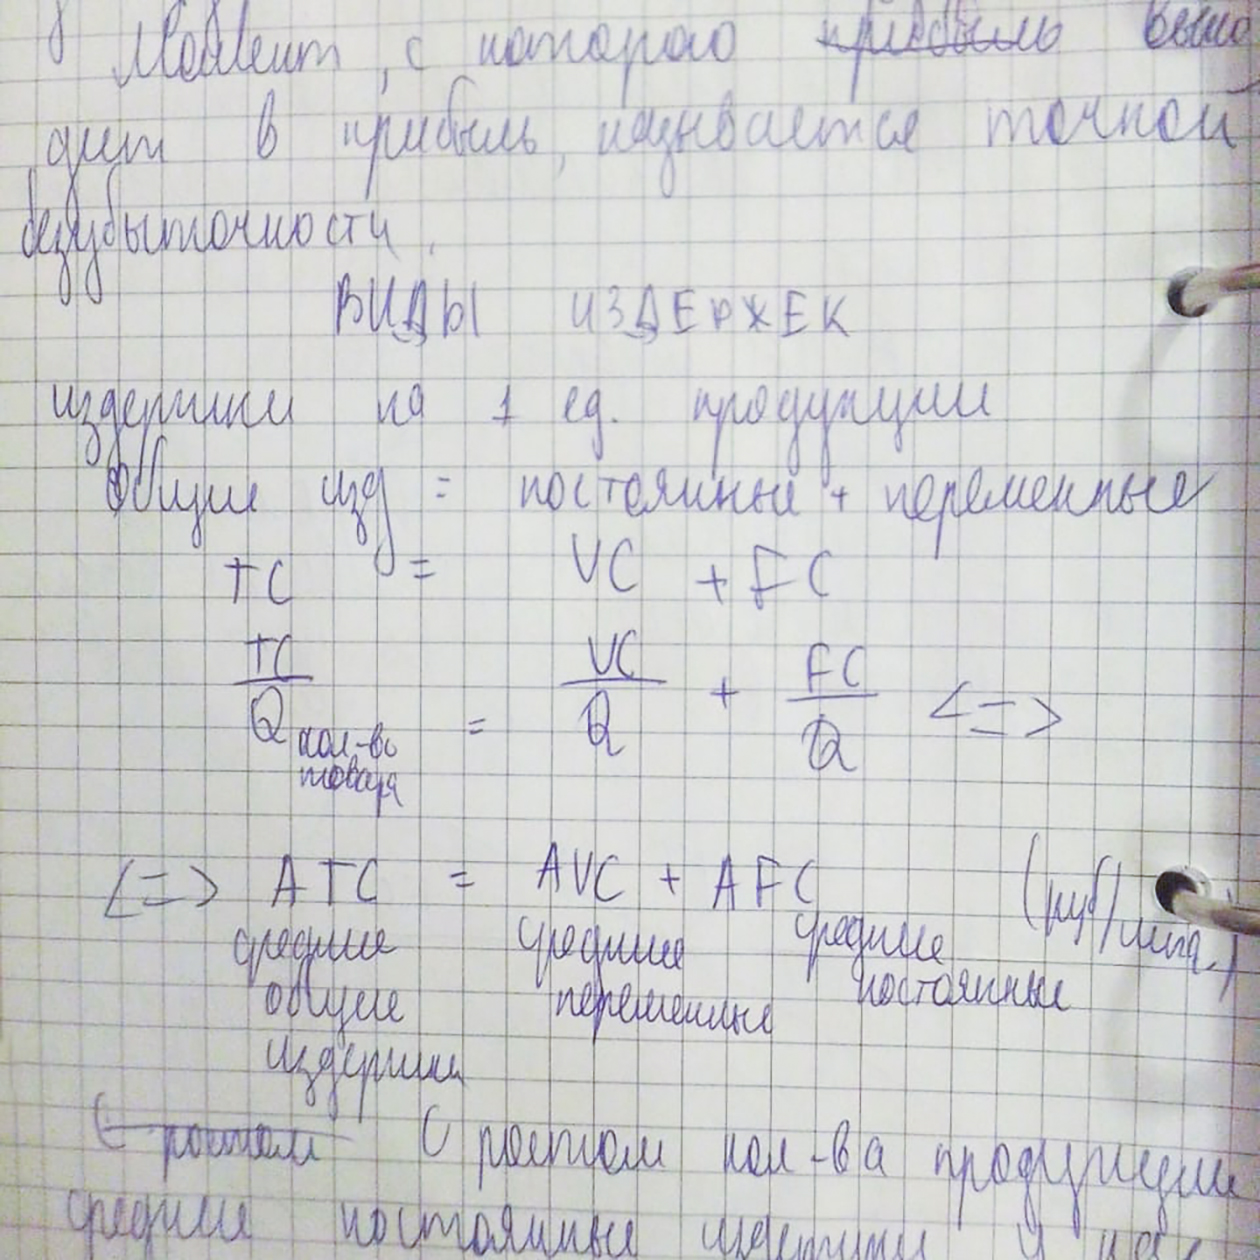 Момент, с которого прибыль выхо
дит в прибыль, называется точкой
безубыточности.
ВИДЫ ИЗДЕРЖЕК
издержки на 1 ед. продукции
Общие изд = постоянные + переменные
TC = VC + FC
TC/Q кол-во товара = VC/Q + FC/Q <=>
<=> ATC = AVC + AFC (руб/шт.)
средние общие издержки средние переменные средние постоянные
С ростом С ростом кол-ва продукции
средние постоянные издержки